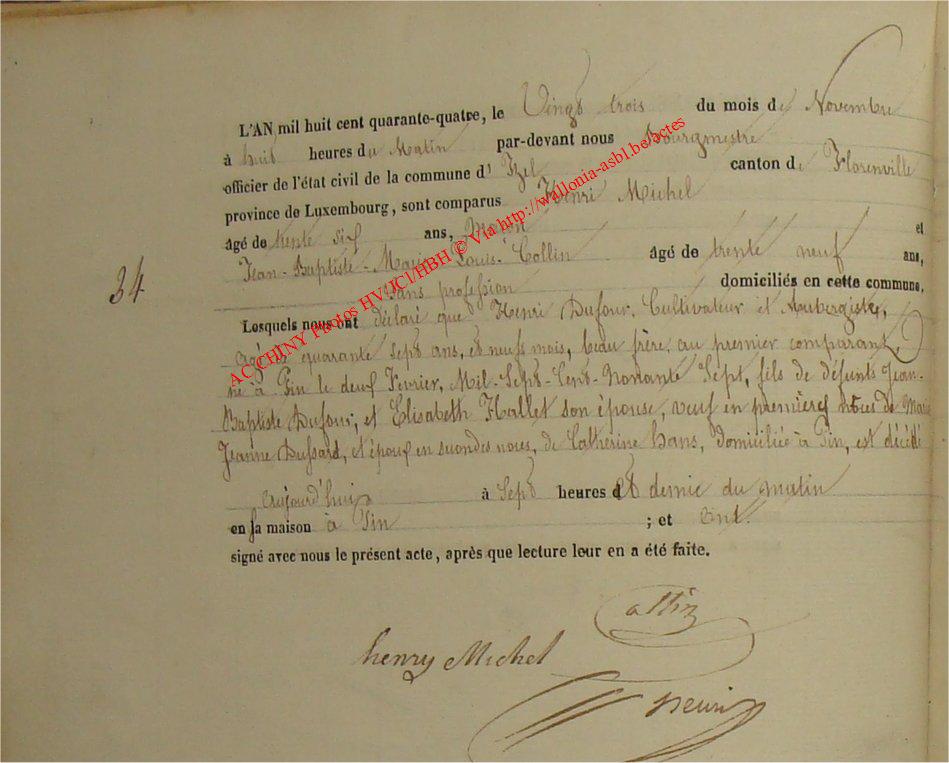 L'AN mil huit cent quarante-quatre, le Vingt trois du mois de Novembre
à huit heures du Matin par-devant nous Bourgmestre
officier de l'état civil de la commune d' Izel canton de Florenville
province de Luxembourg, sont comparus Henri Michel
âgé de trente six ans, Maçon et
Jean-Baptiste-Marie-Louis-Collin âgé de trente neuf ans,
34
Sans profession domiciliés en cette commune,
Lesquels nous ont déclaré que Henri Dufour, Cultivateur et Aubergiste,
agé de quarante sept ans, et neuf mois, beau frère au premier comparant
né à Pin le deux Février, Mil-Sept-Cent-Nonante Sept, fils de défunts Jean-
Baptiste Dufour, et Elisabeth Hallet son épouse, veuf en premières noces de Marie
Jeanne Dussard, et époux en secondes noces, de Catherine Hans, domiciliée à Pin, est décédé
aujourd'hui à Sept heures et demie du matin
en sa maison à Pin ; et ont
signé avec nous le présent acte, après que lecture leur en a été faite.
henry Michel
AC CHINY Photos HV/JCI/HBH © Via http://wallonia-asbl.be/actes